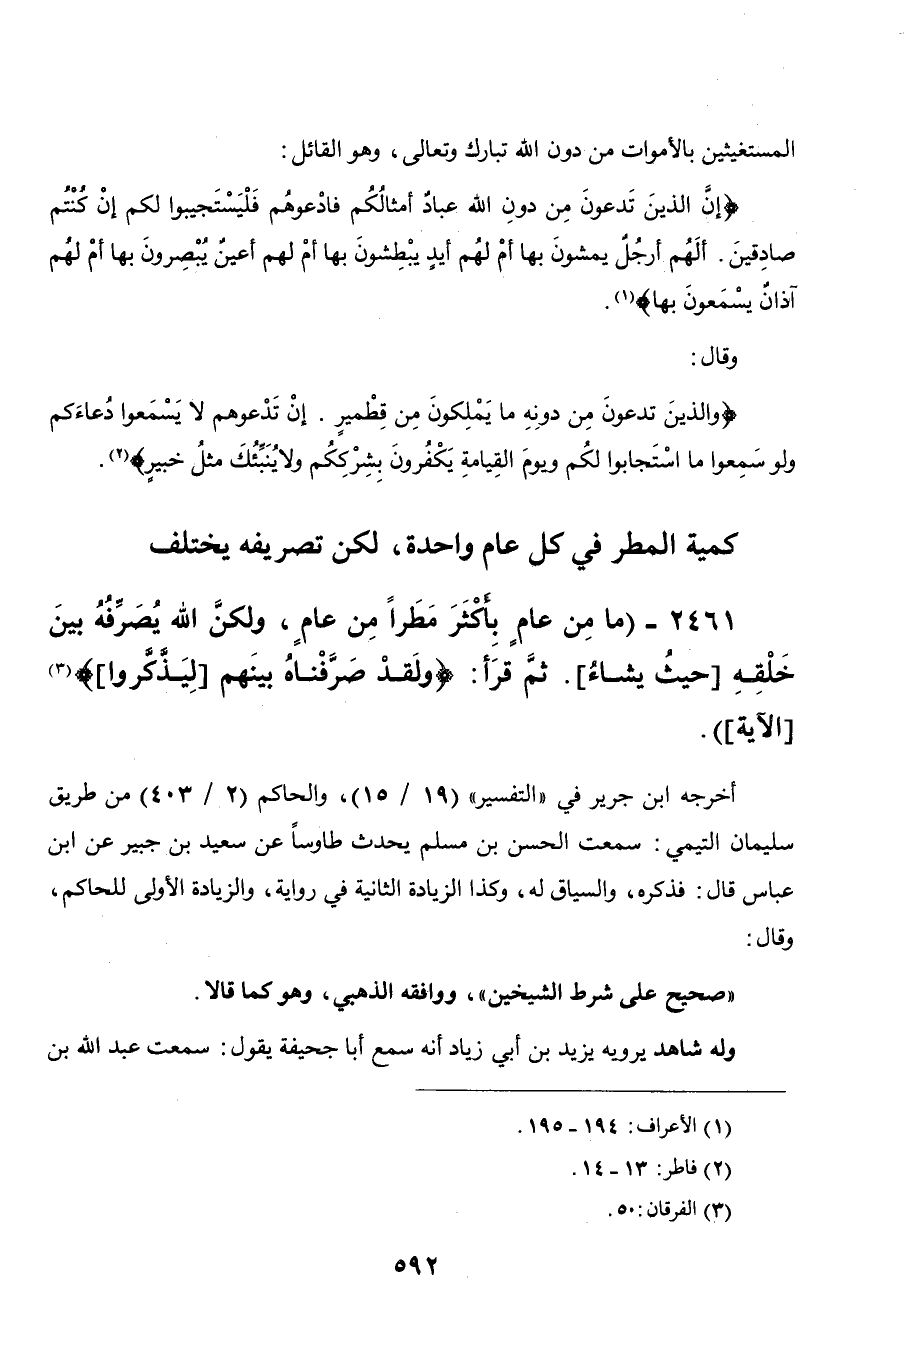 المستغيثين بالأموات من دون الله تبارك وتعالى، وهو القائل:
﴿إنَّ الذينَ تَدعونَ مِن دونِ الله عبادٌ أمثالُكُم فادْعوهُم فَلْيَسْتَجيبوا لكم إنْ كُنْتُم
صادِقينَ. ألَهُم أرجُلٌ يمشونَ بها أمْ لهُم أيدٍ يبْطِشونَ بها أمْ لهم أعينٌ يُبْصِرونَ بها أمْ لهُم
آذانٌ يسْمَعونَ بها﴾(١).
وقال:
﴿والذينَ تدعونَ مِن دونِهِ ما يَمْلِكونَ مِن قِطْميرٍ. إنْ تَدْعوهم لا يَسْمَعوا دُعاءَكم
ولو سَمِعوا ما اسْتَجابوا لكُم ويومَ القِيامةِ يَكْفُرونَ بِشرْكِكُم ولا يُنَبِّئُكَ مثلُ خبيرٍ﴾(٢).
كمية المطر في كل عام واحدة، لكن تصريفه يختلف
٢٤٦١ - (ما مِن عامٍ بِأَكْثَرَ مَطَراً مِن عامٍ، ولكنَّ الله يُصَرِّفُهُ بينَ
خَلْقِهِ [حيثُ يشاءُ]. ثمَّ قرَأ: ﴿ولَقدْ صَرَّفْناهُ بينَهم [لِيَذَّكَّروا]﴾(٣)
[الآية]).
أخرجه ابن جرير في «التفسير» (١٩ / ١٥)، والحاكم (٢ / ٤٠٣) من طريق
سليمان التيمي: سمعت الحسن بن مسلم يحدث طاوساً عن سعيد بن جبير عن ابن
عباس قال: فذكره، والسياق له، وكذا الزيادة الثانية في رواية، والزيادة الأولى للحاكم،
وقال:
«صحيح على شرط الشيخين»، ووافقه الذهبي، وهو كما قالا.
وله شاهد يرويه يزيد بن أبي زياد أنه سمع أبا جحيفة يقول: سمعت عبد الله بن
(١) الأعراف: ١٩٤ - ١٩٥.
(٢) فاطر: ١٣ - ١٤.
(٣) الفرقان: ٥٠.
٥٩٢